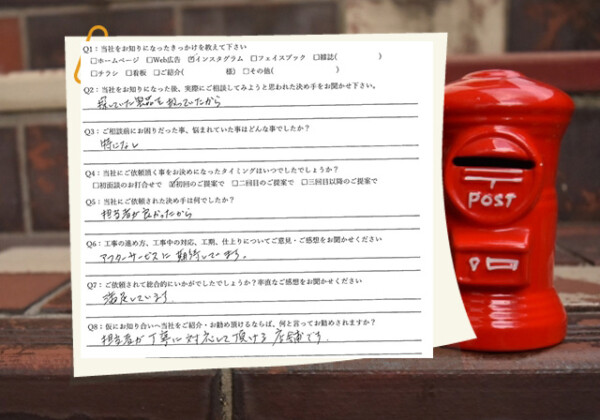 Q1：当社をお知りになったきっかけを教えて下さい
□ホームページ □Web広告 ☑インスタグラム □フェイスブック □雑誌(　　　)
□チラシ □看板 □ご紹介(　　　様) □その他(　　　)
Q2：当社をお知りになった後、実際にご相談してみようと思われた決め手をお聞かせ下さい。
探していた製品を扱っていたから
Q3：ご相談前にお困りだった事、悩まれていた事はどんな事でしたか？
特になし
Q4：当社にご依頼頂く事をお決めになったタイミングはいつでしたでしょうか？
□初面談のお打合せで ☑初回のご提案で □二回目のご提案で □三回目以降のご提案で
Q5：当社にご依頼された決め手は何でしたか？
担当者が良かったから
Q6：工事の進め方、工事中の対応、工期、仕上りについてご意見・ご感想をお聞かせください
アフターサービスに期待しています。
Q7：ご依頼されて総合的にいかがでしたでしょうか？率直なご感想をお聞かせください
満足しています
Q8：仮にお知り合いへ当社をご紹介・お勧め頂けるならば、何と言ってお勧めされますか？
担当者が丁寧に対応して頂ける店舗です。
POST